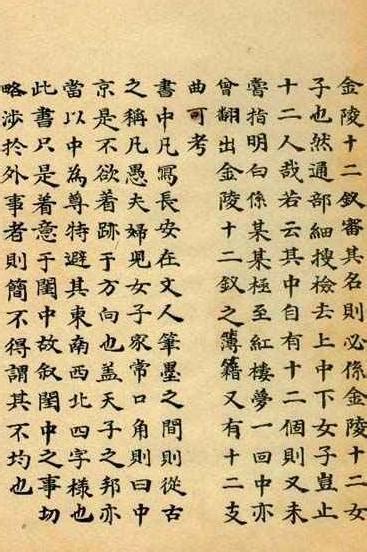 金陵十二釵審其名則必係金陵十二女
子也然通部細搜檢去上中下女子豈止
十二人哉若云其中自有十二個則又未
嘗指明白係某某極至紅樓夢一回中亦
曾翻出金陵十二釵之簿籍又有十二支
曲可考
書中凡寫長安在文人筆墨之間則從古
之稱凡愚夫婦兒女子家常口角則曰中
京是不欲着跡于方向也盖天子之邦亦
當以中為尊特避其東南西北四字樣也
此書只是着意于閨中故叙閨中之事切
略涉於外事者則簡不得謂其不均也